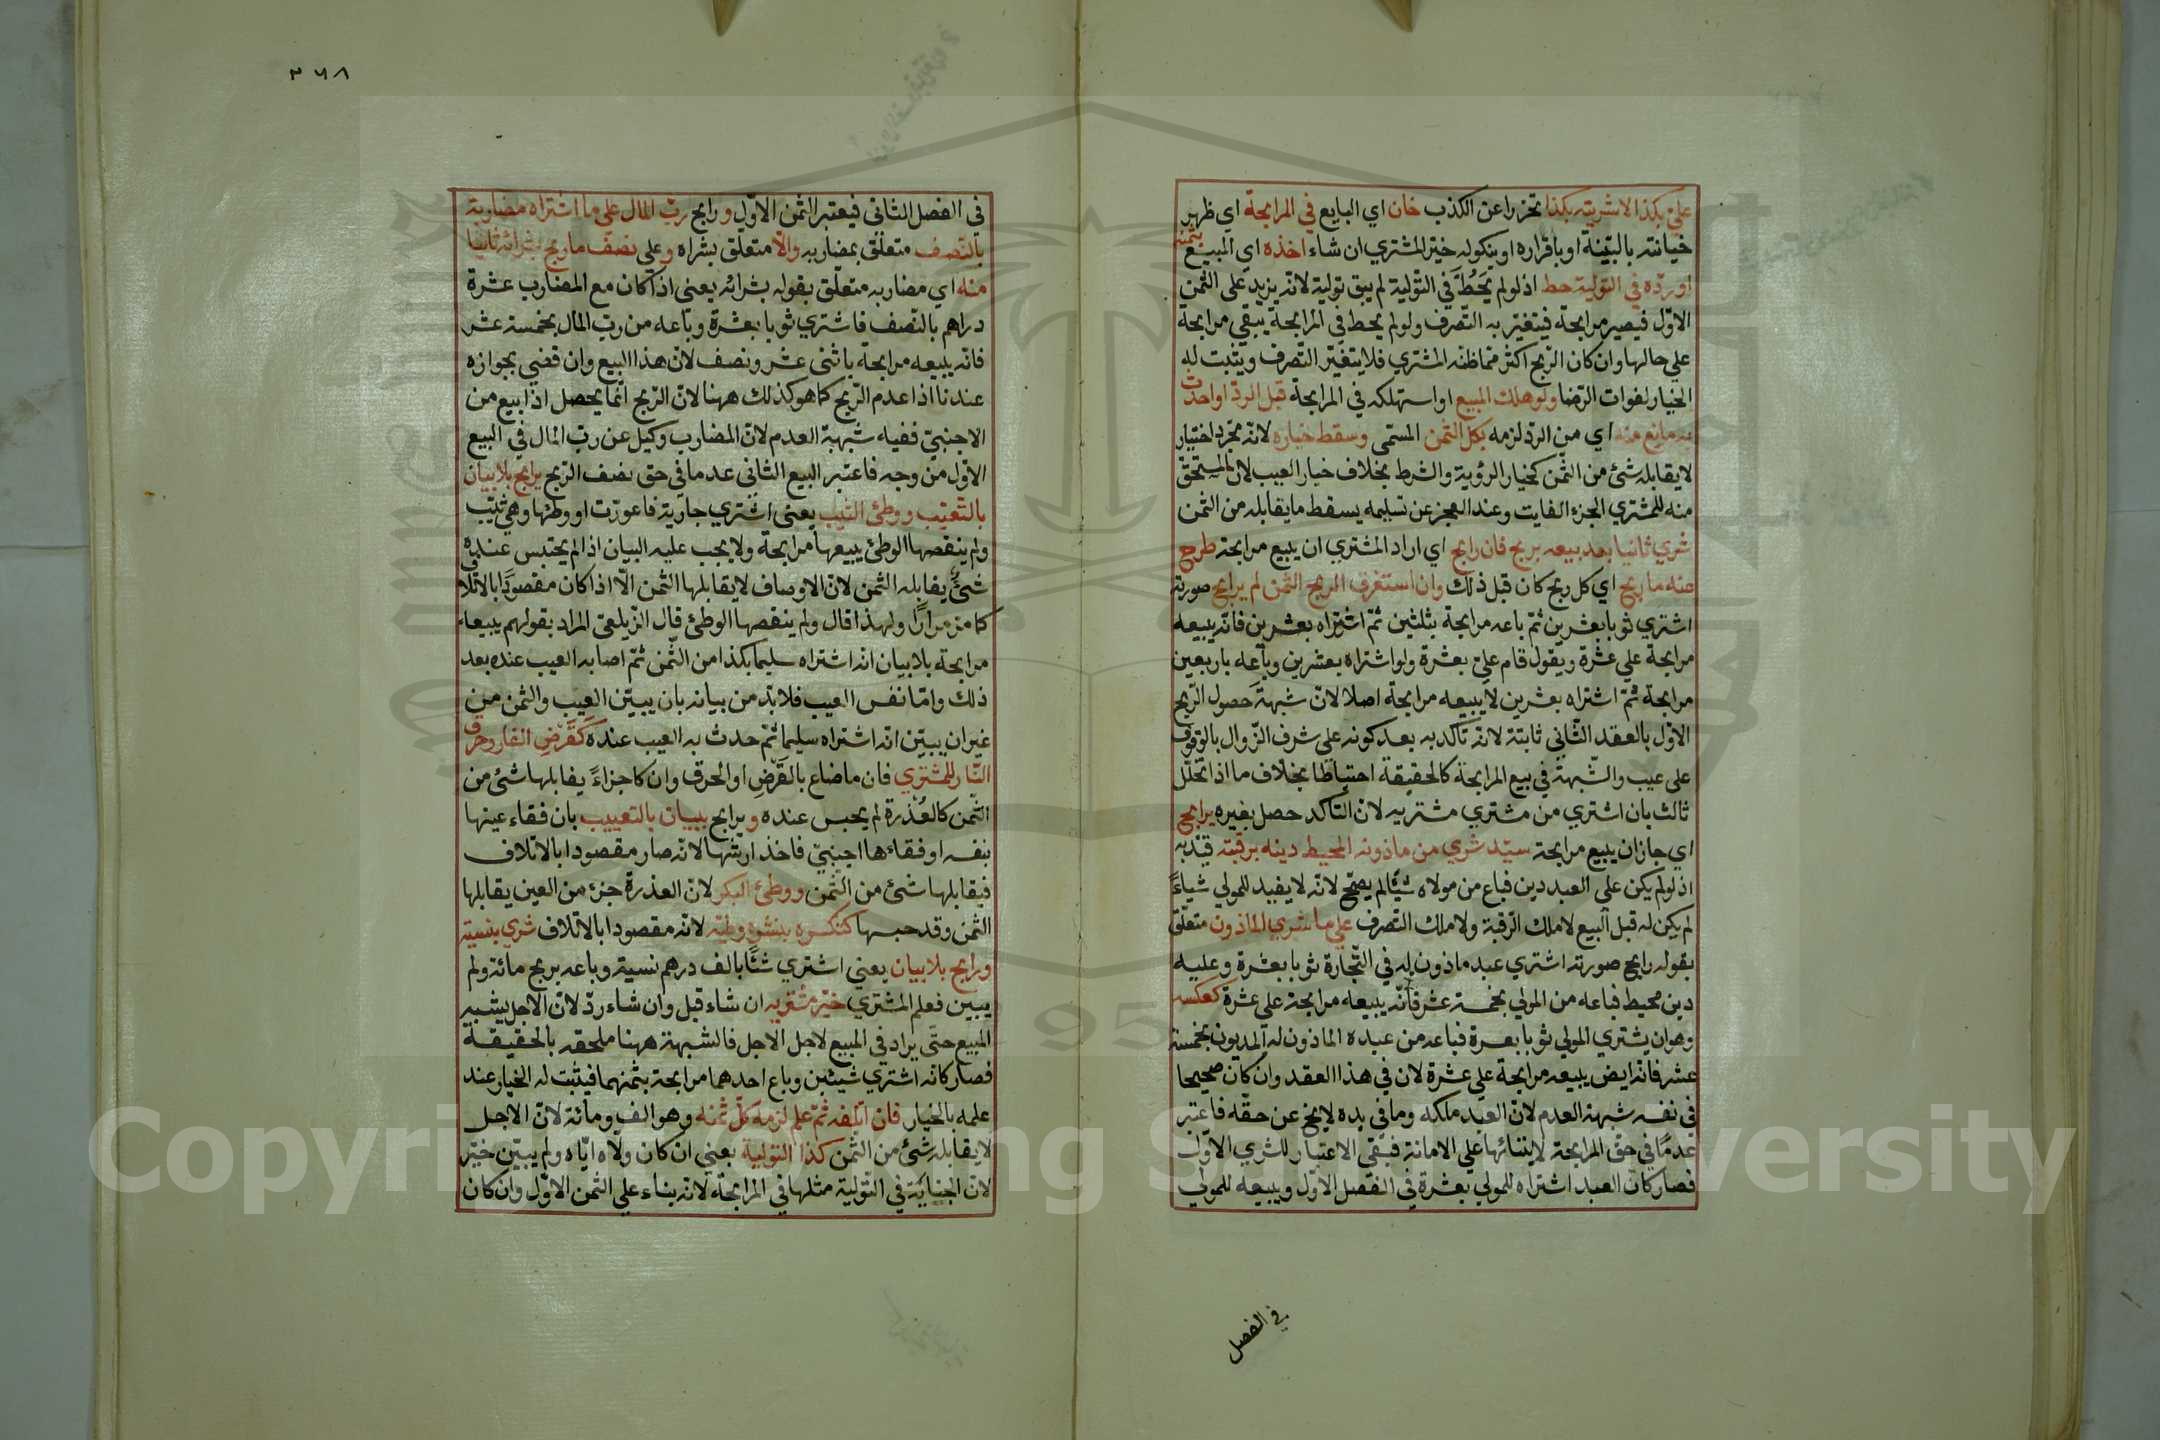 عليّ بكذا لا شريته بكذا تحرزا عن الكذب خان اي البايع في المرابحة اي ظهر
خيانته بالبيّنة او باقراره او بنكوله خيّر المشتري ان شاء اخذه اي المبيع بثمنه
او ردّه في التولية حط اذ لو لم يَحُطّ في التولية لم يبق تولية لانه يزيد على الثمن
الاوّل فيصير مرابحة فيتغيّر به التصرف ولو لم يحط في المرابحة يبقي مرابحة
علي حالها وان كان الربح اكثر مما ظنه المشتري فلا يتغيّر التصرف ويثبت له
الخيار لفوات الرّضا ولو هلك المبيع او استهلكه في المرابحة قبل الردّ او احدث
به مانع منه اي من الردّ لزمه بكل الثمن المسمّى وسقط خياره لانه مجرد اختيار
لا يقابله شئ من الثّمن كخيار الرؤية والشرط بخلاف خيار العيب لان المستحقّ
منه للمشتري الجزء الفايت وعند العجز عن تسليمه يسقط ما يقابله من الثمن
شري ثانيا بعد بيعه بربح فان رابح اي اراد المشتري ان يبيع مرابحة طرح
عنه ما ربح اي كل ربح كان قبل ذلك وان استغرق الربح الثمن لم يرابح صورته
اشتري ثوبا بعشرين ثمّ باعه مرابحة بثلثين ثمّ اشتراه بعشرين فانّه يبيعه
مرابحة علي عشرة ويقول قام عليّ بعشرة ولو اشتراه بعشرين وباعه باربعين
مرابحة ثمّ اشتراه بعشرين لا يبيعه مرابحة اصلا لانّ شبهة حصول الرّبح
الاوّل بالعقد الثّاني ثابتة لانه تأكد به بعد كونه علي شرف الزّوال بالوقوف
علي عيب والشّبهة في بيع المرابحة كالحقيقة احتياطا بخلاف ما اذا تخلّل
ثالث بان اشتري من مشتري مشتريه لان التاكد حصل بغيره يرابح
اي جاز ان يبيع مرابحة سيّد شري من ماذونه المحيط دينه برقبته قيّد به
اذ لو لم يكن علي العبد دين فباع من مولاه شيئا لم يصحّ لانّه لا يفيد للمولي شياءً
لم يكن له قبل البيع لا ملك الرّقبة ولا ملك التصرف علي ما شري الماذون متعلّق
بقوله رابح صورته اشتري عبد ماذون له في التّجارة ثوبا بعشرة وعليه
دين محيط فباعه من المولي بخمسة عشر فانّه يبيعه مرابحة علي عشرة كعكسه
وهو ان يشتري المولي ثوبا بعشرة فباعه من عبده الماذون له المديون بخمسة
عشر فانه ايض يبيعه مرابحة علي عشرة لان في هذا العقد وان كان صحيحا
في نفسه شبهة العدم لانّ العبد ملكه وما في يده لا يخ عن حقّه فاعتبر
عدمًا في حقّ المرابحة لابتنائها علي الامانة فبقي الاعتبار للشري الاوّل
فصار كانّ العبد اشتراه للمولي بعشرة في الفصل الاوّل ويبيعه للمولي
في الفصل
٣٦٨
في الفصل الثاني فيعتبر الثمن الاوّل ورابح ربّ المال علي ما اشتراه مضاربة
بالنّصف متعلّق بمضاربه والاّ متعلّق بشراه وعلي نصف ما ربح بشرائه ثانيا
منه اي مضاربه متعلّق بقوله بشرائه يعني اذا كان مع المضارب عشرة
دراهم بالنّصف فاشتري ثوبا بعشرة وباعه من ربّ المال بخمسة عشر
فانه يبيعه مرابحة باثني عشر ونصف لانّ هذا البيع وان قضي بجوازه
عندنا اذا عدم الرّبح كما هو كذلك ههنا لانّ الرّبح انّما يحصل اذا بيع من
الاجنبيّ ففيه شبهة العدم لانّ المضارب وكيل عن ربّ المال في البيع
الاوّل من وجه فاعتبر البيع الثاني عدما في حق نصف الرّبح يرابح بلا بيان
بالتعيّب ووطئ الثيب يعني اشتري جارية فاعورّت او وطئها وهي ثيّب
ولم ينقصها الوطئ يبيعها مرابحة ولا يجب عليه البيان اذ لم يحتبس عنده
شئ يقابله الثمن لانّ الاوصاف لا يقابلها الثمن الّا اذا كان مقصودًا بالاتلاف
كما مرّ مرارًا ولهذا قال ولم ينقصها الوطئ قال الزّيلعيّ المراد بقولهم يبيعه
مرابحة بلا بيان انّه اشتراه سليما بكذا من الثّمن ثمّ اصابه العيب عنده بعد
ذلك وامّا نفس العيب فلا بدّ من بيانه بان يبيّن العيب والثمن من
غير ان يبيّن انّه اشتراه سليما ثمّ حدث به العيب عنده كَقَرْضِ الفار وحرق
النّار للمشتري فان ما ضاع بالقَرْضِ او الحرق وان كا جزاءً يقابلها شئ من
الثمن كالعُذْرة لم يحبس عنده ويرابح ببيان بالتعييب بان فقاء عينها
بنفسه او فقاءها اجنبيّ فاخذ ارشها لانّه صار مقصودا بالاتلاف
فيقابلها شئ من الثمن ووطئ البكر لانّ العذرة جزء من العين يقابلها
الثمن وقد حبسها كتكسره بنشره وطيّه لانّه مقصودا بالاتلاف شري بنسية
ورابح بلا بيان يعني اشتري شئًا بالف درهم نسية وباعه بربح مائة ولم
يبين فعلم المشتري خيّر مشتريه ان شاء قبل وان شاء ردّ لانّ الاجل يشبه
المبيع حتّى يراد في المبيع لاجل الاجل فالشبهة ههنا ملحقه بالحقيقة
فصار كانه اشتري شيئين وباع احدهما مرابحة بثمنهما فيثبت له الخيار عند
علمه بالخيار فان اتلفه ثمّ علم لزمه كلّ ثمنه وهو الف ومائة لانّ الاجل
لا يقابله شئ من الثمن كذا التولية يعني ان كان ولّاه ايّاه ولم يبيّن خيّر
لانّ الجناية في التولية مثلها في المرابحة لانّه بناء علي الثمن الاوّل وان كان